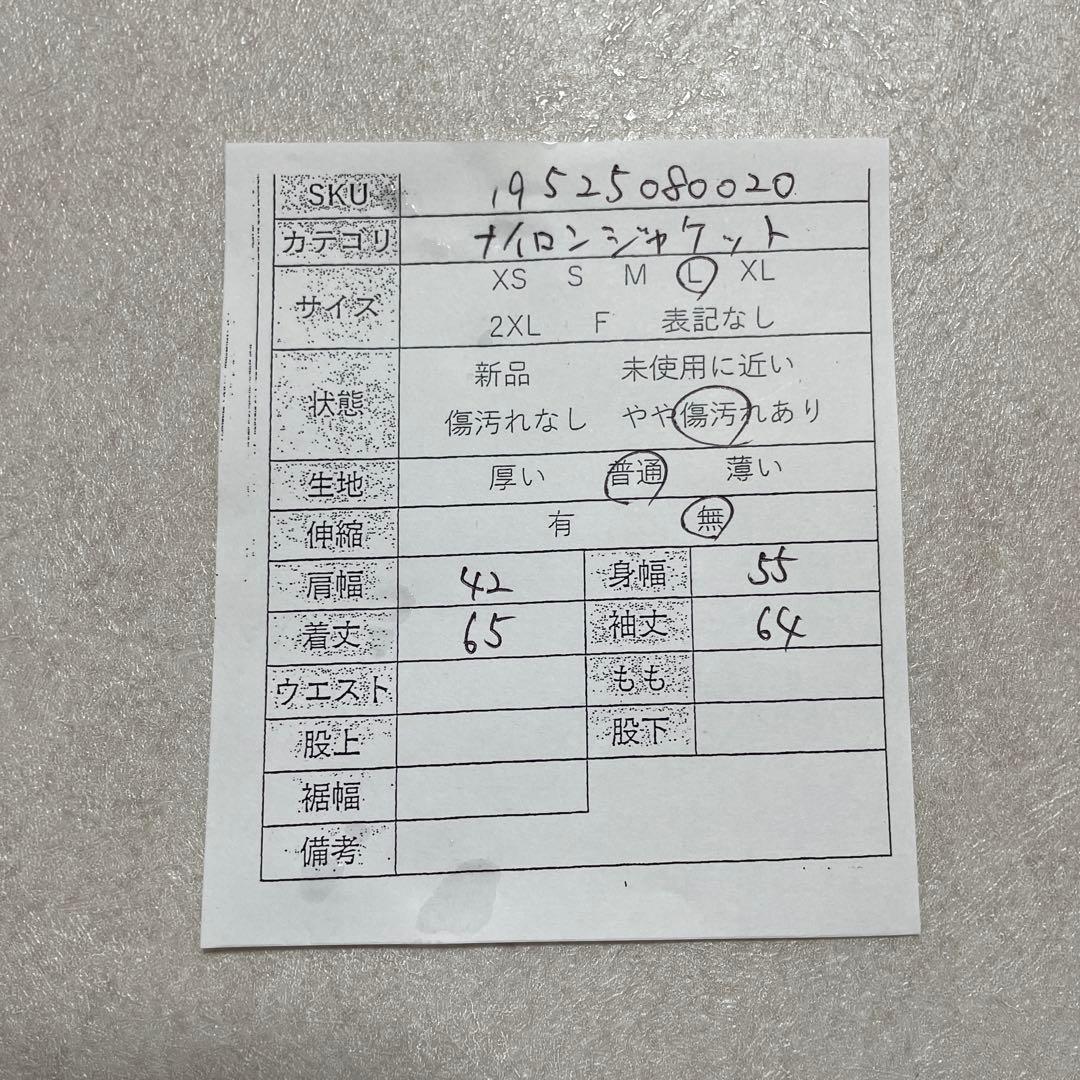 SKU 19525080020
カテゴリ ナイロンジャケット
サイズ XS S M L XL
2XL F 表記なし
状態 新品 未使用に近い
傷汚れなし やや傷汚れあり
生地 厚い 普通 薄い
伸縮 有 無
肩幅 42 身幅 55
着丈 65 袖丈 64
ウエスト もも
股上 股下
裾幅
備考